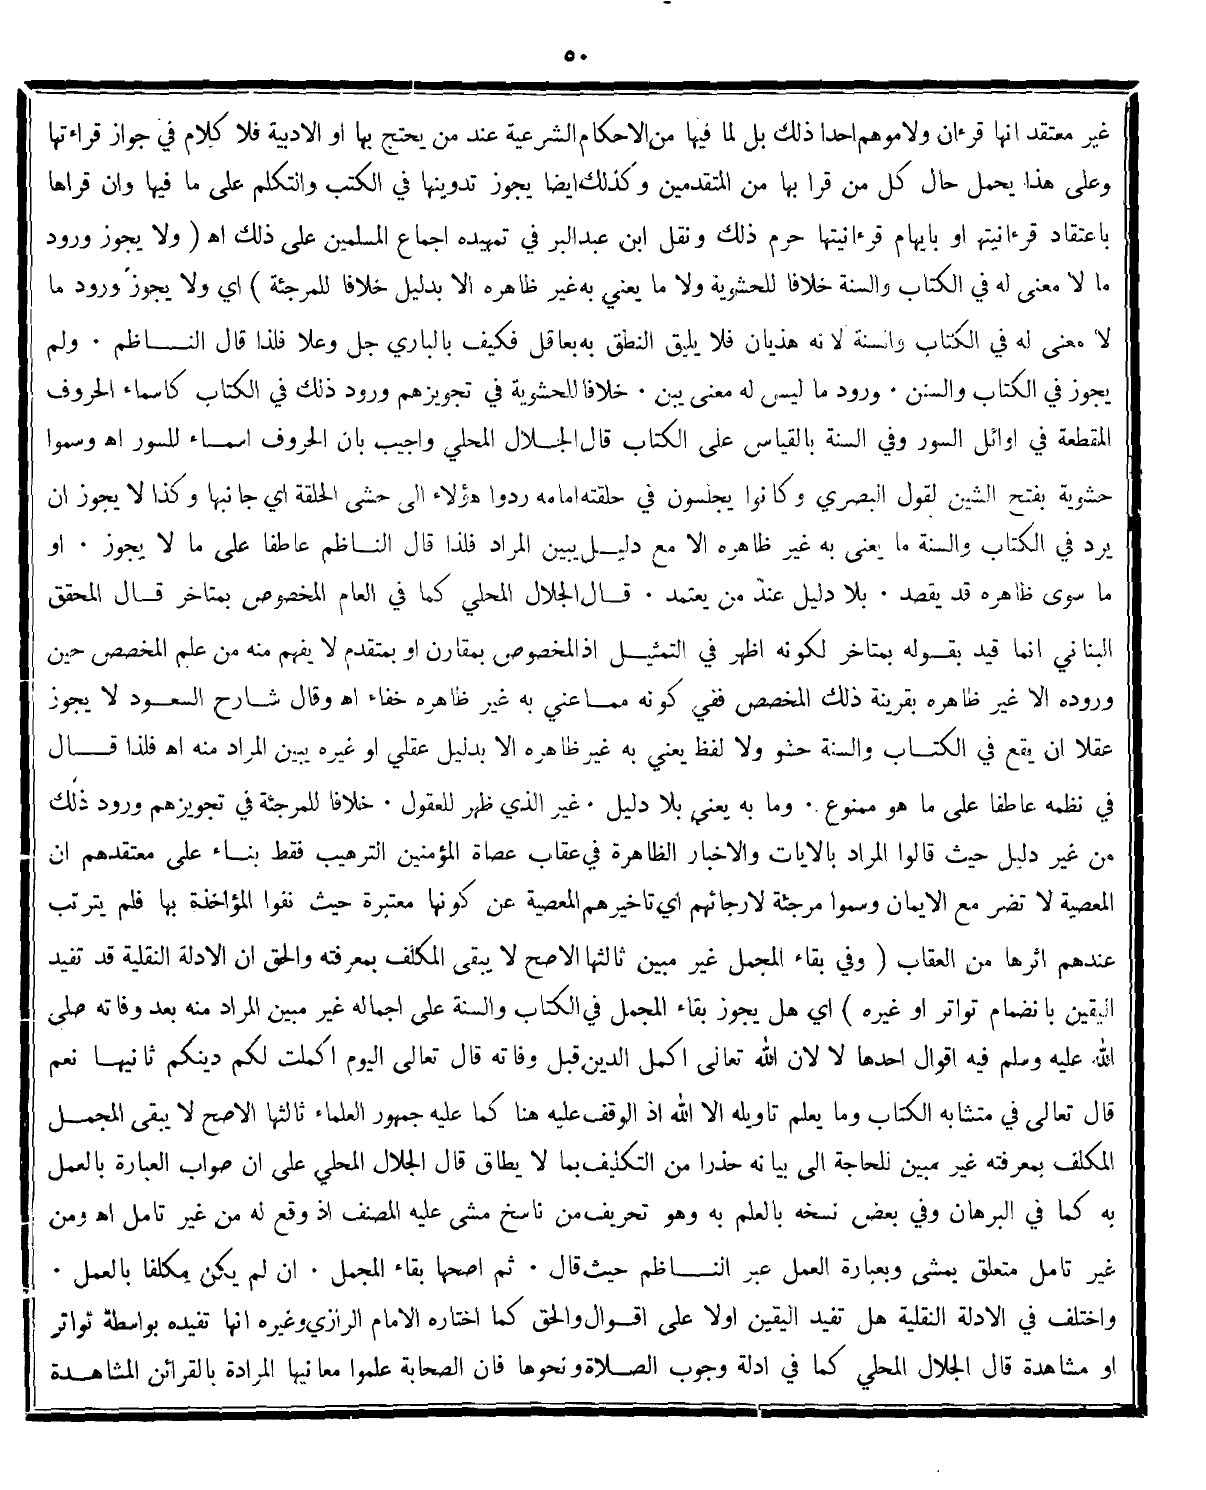 ٥٠
غير معتقد انها قرءان ولاموهم احدا ذلك بل لما فيها من الاحكام الشرعية عند من يحتج بها او الادبية فلا كلام في جواز قراءتها
وعلى هذا يحمل حال كل من قرا بها من المتقدمين وكذلك ايضا يجوز تدوينها في الكتب والتكلم على ما فيها وان قراها
باعتقاد قرءانيتها او بايهام قرءانيتها حرم ذلك ونقل ابن عبدالبر في تمهيده اجماع المسلمين على ذلك اه ( ولا يجوز ورود
ما لا معنى له في الكتاب والسنة خلافا للحشوية ولا ما يعني به غير ظاهره الا بدليل خلافا للمرجئة ) اي ولا يجوز ورود ما
لا معنى له في الكتاب والسنة لانه هذيان فلا يليق النطق به بعاقل فكيف بالباري جل وعلا فلذا قال النـاظم ٠ ولم
يجوز في الكتاب والسنن ٠ ورود ما ليس له معنى يبن ٠ خلافا للحشوية في تجويزهم ورود ذلك في الكتاب كاسماء الحروف
المقطعة في اوائل السور وفي السنة بالقياس على الكتاب قال الجلال المحلي واجيب بان الحروف اسماء للسور اه وسموا
حشوية بفتح الشين لقول البصري وكانوا يجلسون في حلقته امامه ردوا هؤلاء الى حشى الحلقة اي جانبها وكذا لا يجوز ان
يرد في الكتاب والسنة ما يعنى به غير ظاهره الا مع دليل يبين المراد فلذا قال النـاظم عاطفا على ما لا يجوز ٠ او
ما سوى ظاهره قد يقصد ٠ بلا دليل عند من يعتمد ٠ قـال الجلال المحلي كما في العام المخصوص بمتاخر قـال المحقق
البناني انما قيد بقـوله بمتاخر لكونه اظهر في التمثيـل اذ المخصوص بمقارن او بمتقدم لا يفهم منه من علم المخصص حين
وروده الا غير ظاهره بقرينة ذلك المخصص ففي كونه ممـا عني به غير ظاهره خفاء اه وقال شـارح السعـود لا يجوز
عقلا ان يقع في الكتـاب والسنة حشو ولا لفظ يعني به غير ظاهره الا بدليل عقلي او غيره يبين المراد منه اه فلذا قـال
في نظمه عاطفا على ما هو ممنوع ٠ وما به يعني بلا دليل ٠ غير الذي ظهر للعقول ٠ خلافا للمرجئة في تجويزهم ورود ذلك
من غير دليل حيث قالوا المراد بالايات والاخبار الظاهرة في عقاب عصاة المؤمنين الترهيب فقط بنـاء على معتقدهم ان
المعصية لا تضر مع الايمان وسموا مرجئة لارجائهم اي تاخيرهم المعصية عن كونها معتبرة حيث نفوا المؤاخذة بها فلم يترتب
عندهم اثرها من العقاب ( وفي بقاء المجمل غير مبين ثالثها الاصح لا يبقى المكلف بمعرفته والحق ان الادلة النقلية قد تفيد
اليقين بانضمام تواتر او غيره ) اي هل يجوز بقاء المجمل في الكتاب والسنة على اجماله غير مبين المراد منه بعد وفاته صلى
الله عليه وسلم فيه اقوال احدها لا لان الله تعالى اكمل الدين قبل وفاته قال تعالى اليوم اكملت لكم دينكم ثانيهـا نعم
قال تعالى في متشابه الكتاب وما يعلم تاويله الا الله اذ الوقف عليه هنا كما عليه جمهور العلماء ثالثها الاصح لا يبقى المجمـل
المكلف بمعرفته غير مبين للحاجة الى بيانه حذرا من التكليف بما لا يطاق قال الجلال المحلي على ان صواب العبارة بالعمل
به كما في البرهان وفي بعض نسخه بالعلم به وهو تحريف من ناسخ مشى عليه المصنف اذ وقع له من غير تامل اه ومن
غير تامل متعلق بمشى وبعبارة العمل عبر النـاظم حيث قال ٠ ثم اصحها بقاء المجمل ٠ ان لم يكن مكلفا بالعمل ٠
واختلف في الادلة النقلية هل تفيد اليقين اولا على اقـوال والحق كما اختاره الامام الرازي وغيره انها تفيده بواسطة تواتر
او مشاهدة قال الجلال المحلي كما في ادلة وجوب الصلاة ونحوها فان الصحابة علموا معانيها المرادة بالقرائن المشاهـدة